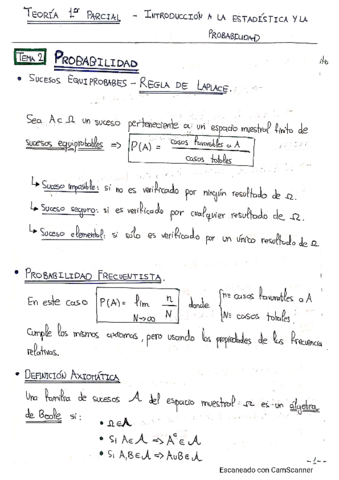 TEORÍA 1er PARCIAL - INTRODUCCIÓN A LA ESTADÍSTICA Y LA
PROBABILIDAD
TEMA 2 PROBABILIDAD
• SUCESOS EQUIPROBABES - REGLA DE LAPLACE.
Sea A ⊂ Ω un suceso perteneciente a un espacio muestral finito de
sucesos equiprobables => P(A) = casos favorables a A / casos totales
↳ Suceso imposible: si no es verificado por ningún resultado de Ω.
↳ Suceso seguro: si es verificado por cualquier resultado de Ω.
↳ Suceso elemental: si sólo es verificado por un único resultado de Ω
• PROBABILIDAD FRECUENTISTA.
En este caso P(A) = lim N→∞ n/N donde { n = casos favorables a A
N = casos totales
Cumple los mismos axiomas, pero usando las propiedades de las frecuencia
relativas.
• DEFINICIÓN AXIOMÁTICA
Una familia de sucesos A del espacio muestral Ω es un álgebra
de Boole si:
• Ω∈A
• Si A∈A => Aᶜ∈A
• Si A,B∈A => A∪B∈A
-1-
Escaneado con CamScanner